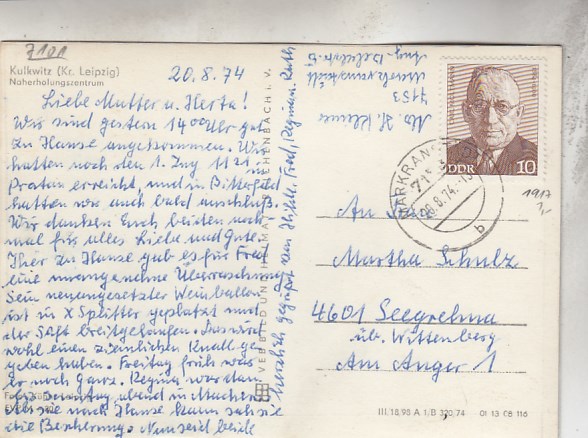 7101
Kulkwitz (Kr. Leipzig)
Naherholungszentrum
20.8.74
Liebe Mutter u. Herta!
Wir sind gestern 14 00 Uhr gut
zu Hause angekommen. Wir
hatten noch den 1. Zug 11 21 in
Pratau erreicht, und in Bitterfeld
hatten wir auch bald anschluß.
Wir danken Euch beiden noch
mal für alles Liebe und Gute.
Hier zu Hause gab es für Fred
eine unangenehme Überraschung.
Sein neuangesetzter Weinballon
ist in X Splitter geplatzt und
der Saft breitgelaufen. Das wird
wohl einen ziemlichen Knall ge-
geben haben. Freitag früh war
er noch Ganz. Regina war dann
abend in
Als sie nach Hause kam sah sie
die Bescherung. Nun seid beide
herzlich gegrüßt von Fred, Regina u. Ruth
VEB BILD UND HEIMAT REICHENBACH I. V.
Abs. H.
7153
Markranstädt
DDR 10
MARKRANSTÄDT
7153
20.8.74
b
1917
An Frau
Martha Schulz
4601 Seegrehna
üb. Wittenberg
Am Anger 1
III/18/98 A 1/B 320/74 01 13 08 116